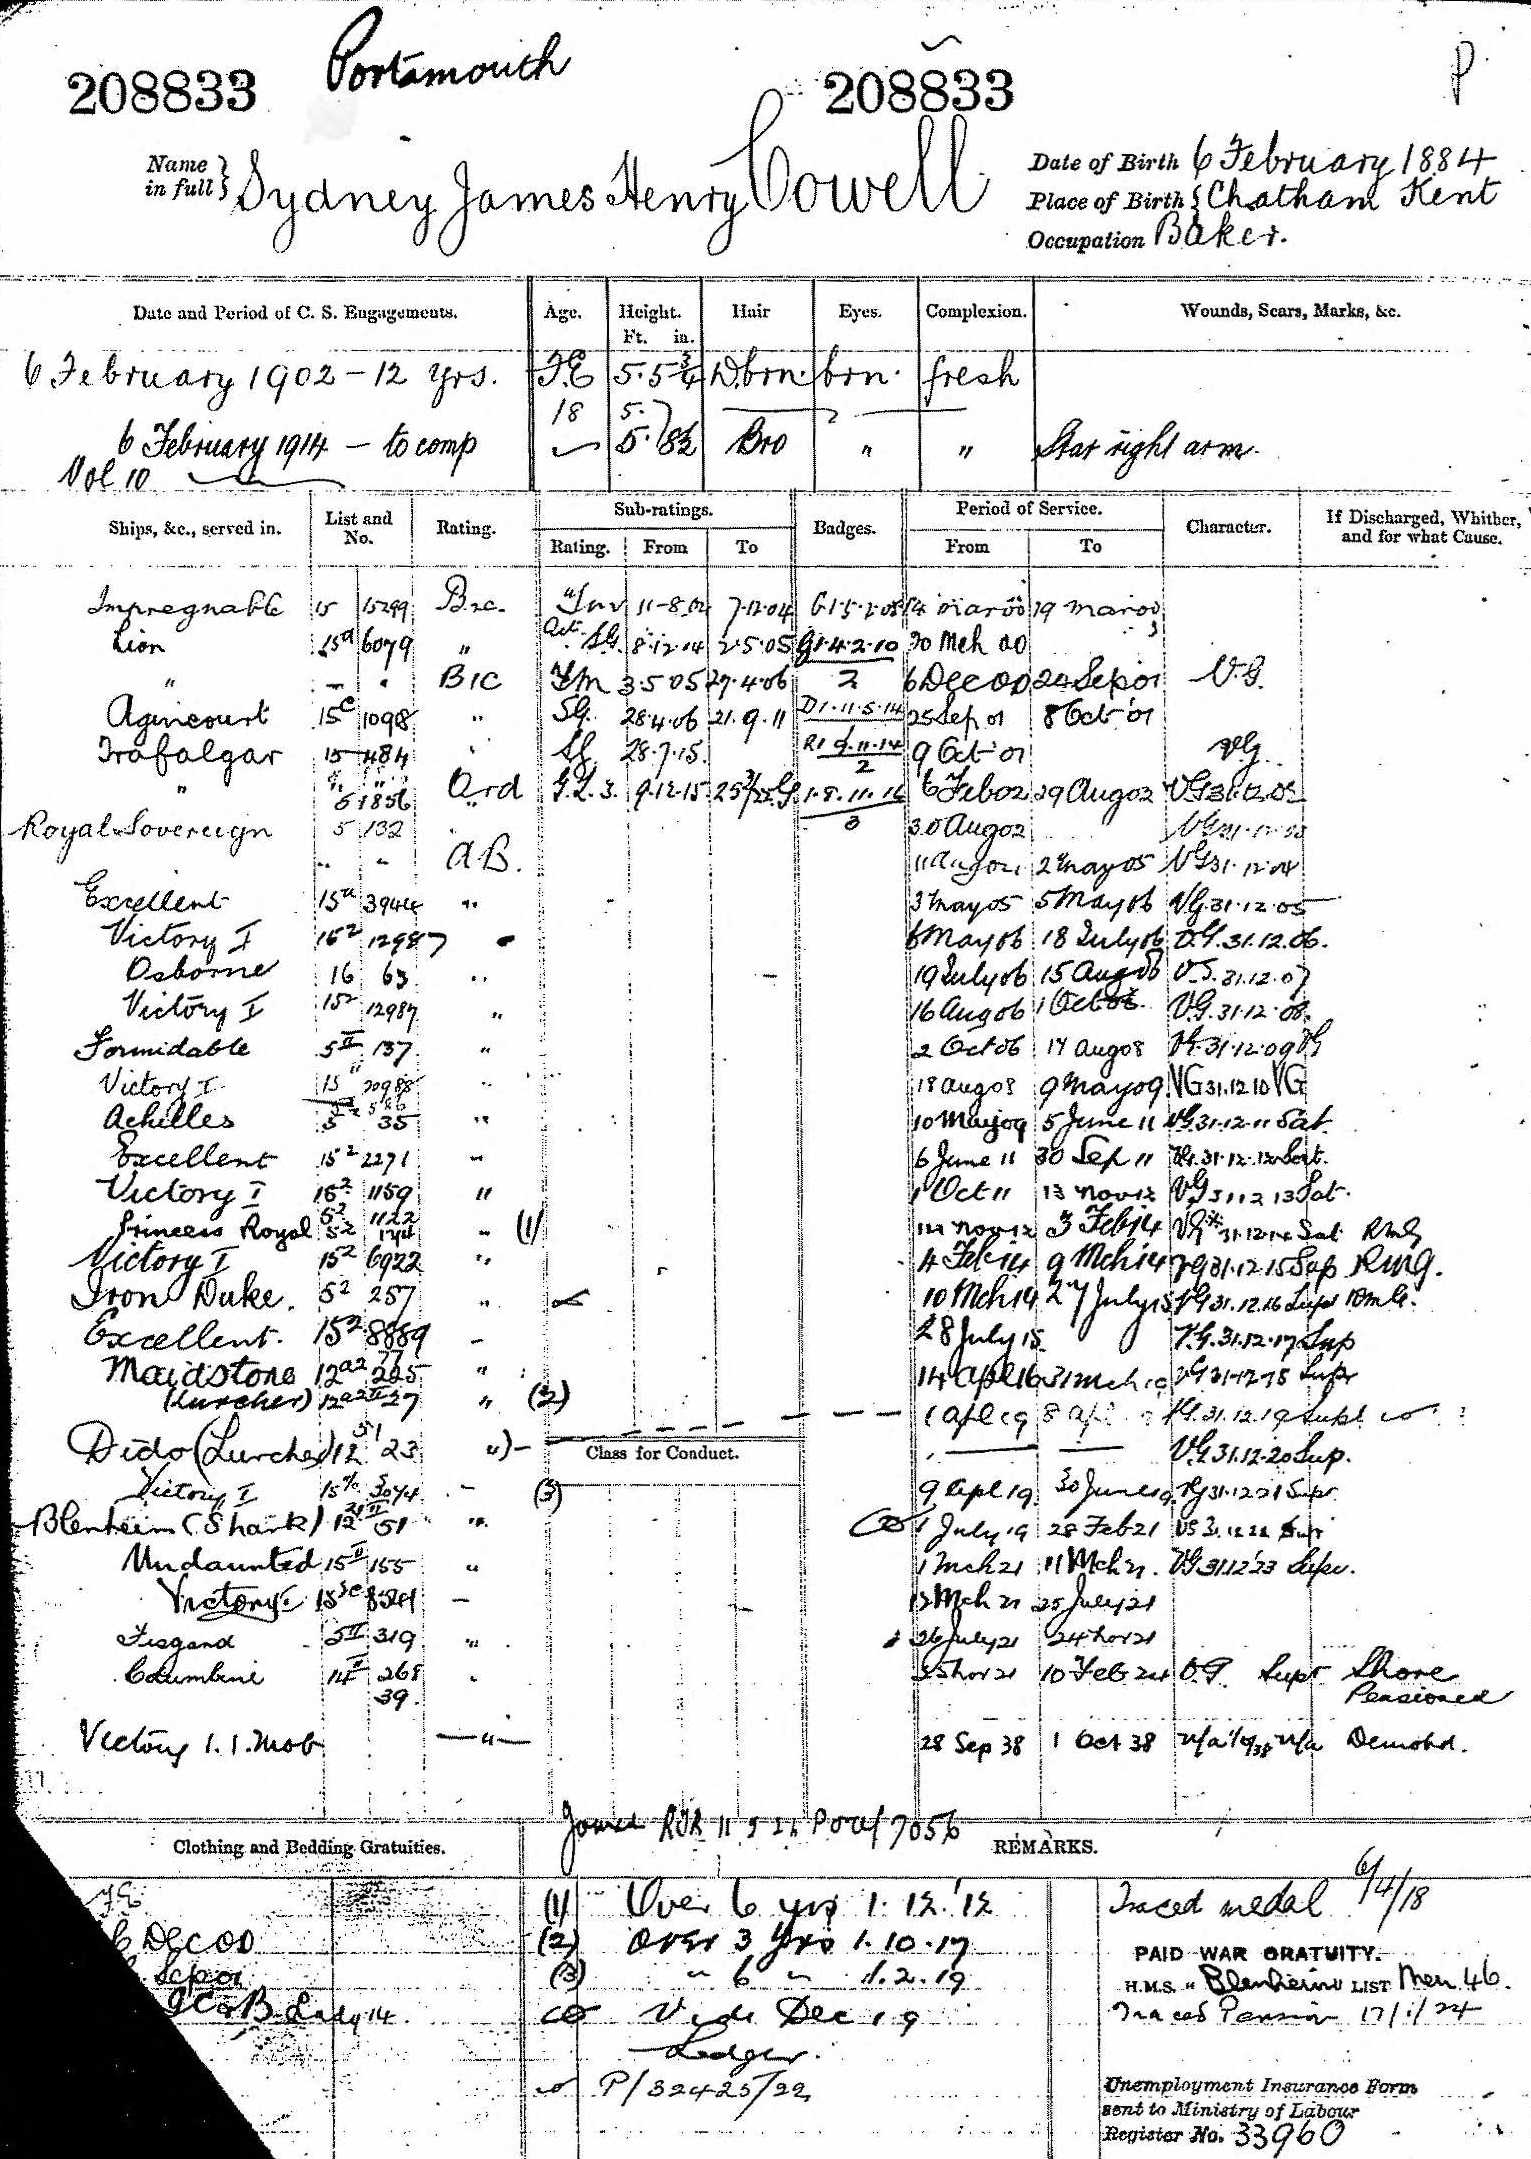 208833 Portsmouth 208833 P
Name in full } Sydney James Henry Cowell
Date of Birth 6 February 1884
Place of Birth { Chatham Kent
Occupation Baker.
Date and Period of C. S. Engagements. Age. Height. Ft. in. Hair Eyes. Complexion. Wounds, Scars, Marks, &c.
6 February 1902 - 12 yrs. 5.5¾ D.brn. brn. fresh
18
6 February 1914 - to comp 5. 8½ Bro " " Star right arm.
Vol 10
Ships, &c., served in. List and No. Rating. Sub-ratings. Rating. From To Badges. Period of Service. From To Character. If Discharged, Whither, and for what Cause.
Impregnable 15 15299 B2c. 11-8.02 7.12.04
Lion 15a 6079 " S.G. 2.5.05 G1.4.2.10 20 Mch 00
" B1C 3.5.05 27.4.06 2 6 Dec 00 24 Sep 01 V.G.
Agincourt 15c 1098 " S.G. 28.4.06 21.9.11 D1.11.5.14 25 Sep 01 8 Oct 01
Trafalgar 15 484 " 28.7.15. R1 9.11.14 2 9 Oct 01 V.G.
" 5 1856 Ord G.L.3. 9.12.15 6 Feb 02 29 Aug 02
Royal Sovereign 5 132 3 30 Aug 02
" " A.B. 2 May 05 VG 31.12.04
Excellent 15a 3944 " 3 May 05 5 May 06 VG.31.12.05
Victory I 15² 12987 " 6 May 06 18 July 06 V.G.31.12.06.
Osborne 16 63 " 19 July 06 15 Aug 06 V.G.31.12.07
Victory I 15² 12987 " 16 Aug 06 1 Oct 06 V.G.31.12.08.
Formidable 5 II 137 " 2 Oct 06 17 Aug 08 VG.31.12.09 VG
Victory I 15 20988 " 18 Aug 08 9 May 09 VG 31.12.10 VG
Achilles 5 35 " 10 May 09 5 June 11 VG 31.12.11 Sat.
Excellent 15² 2271 " 6 June 11 30 Sep 11 VG.31.12.12 Sat.
Victory I 15² 1159 " 1 Oct 11 13 Nov 12 VG 31.12.13 Sat.
Princess Royal 5² 1122 " (1) 14 Nov 12 3 Feb 14 VG* 31.12.14 Sat RMG
Victory I 15² 6922 " 4 Feb 14 9 Mch 14 VG 31.12.15 Sup RMG.
Iron Duke. 5² 257 " 10 Mch 14 27 July 15 VG 31.12.16 Supr RMG.
Excellent. 15² 8889 " 28 July 15. V.G.31.12.17 Sup
Maidstone 12a2 225 " 14 Apl 16 31 Mch 19 VG 31.12.18 Supr
(Lurcher) 12a2 II 27 " (2) 1 Apl 19 8 Apl VG.31.12.19
Dido (Lurcher) 12 23 " V.G.31.12.20 Sup.
Class for Conduct.
Victory I 3074 " (3) 9 Apl 19 30 June 19 VG 31.12.21 Supr
Blenheim (Shark) 12 51 " 1 July 19 28 Feb 21 VG 31.12.22
Undaunted 15 II 155 " 1 Mch 21 11 Mch 21. VG 31.12.23 Supr.
Victory I 12 Mch 21 25 July 21
Fisgard 5 II 319 " 26 July 21 24 Nov 21
Columbine 14 II 268 39. " 25 Nov 21 10 Feb 24 V.G. Supr Shore Pensioned
Victory 1. 1. Mob " 28 Sep 38 1 Oct 38 n/a n/a Demobd.
Joined RFR
Clothing and Bedding Gratuities. REMARKS.
(1) Over 6 yrs 1.12.12 Traced medal 6/4/18
6 Dec 00 (2) Over 3 yrs 1.10.17 PAID WAR GRATUITY.
(3) " 6 " 1.2.19 H.M.S. " Blenheim LIST Men 46.
Vide Dec 19 Traced Pension 17/1/24
Ledger.
P/32425/22
Unemployment Insurance Form
sent to Ministry of Labour
Register No. 33960